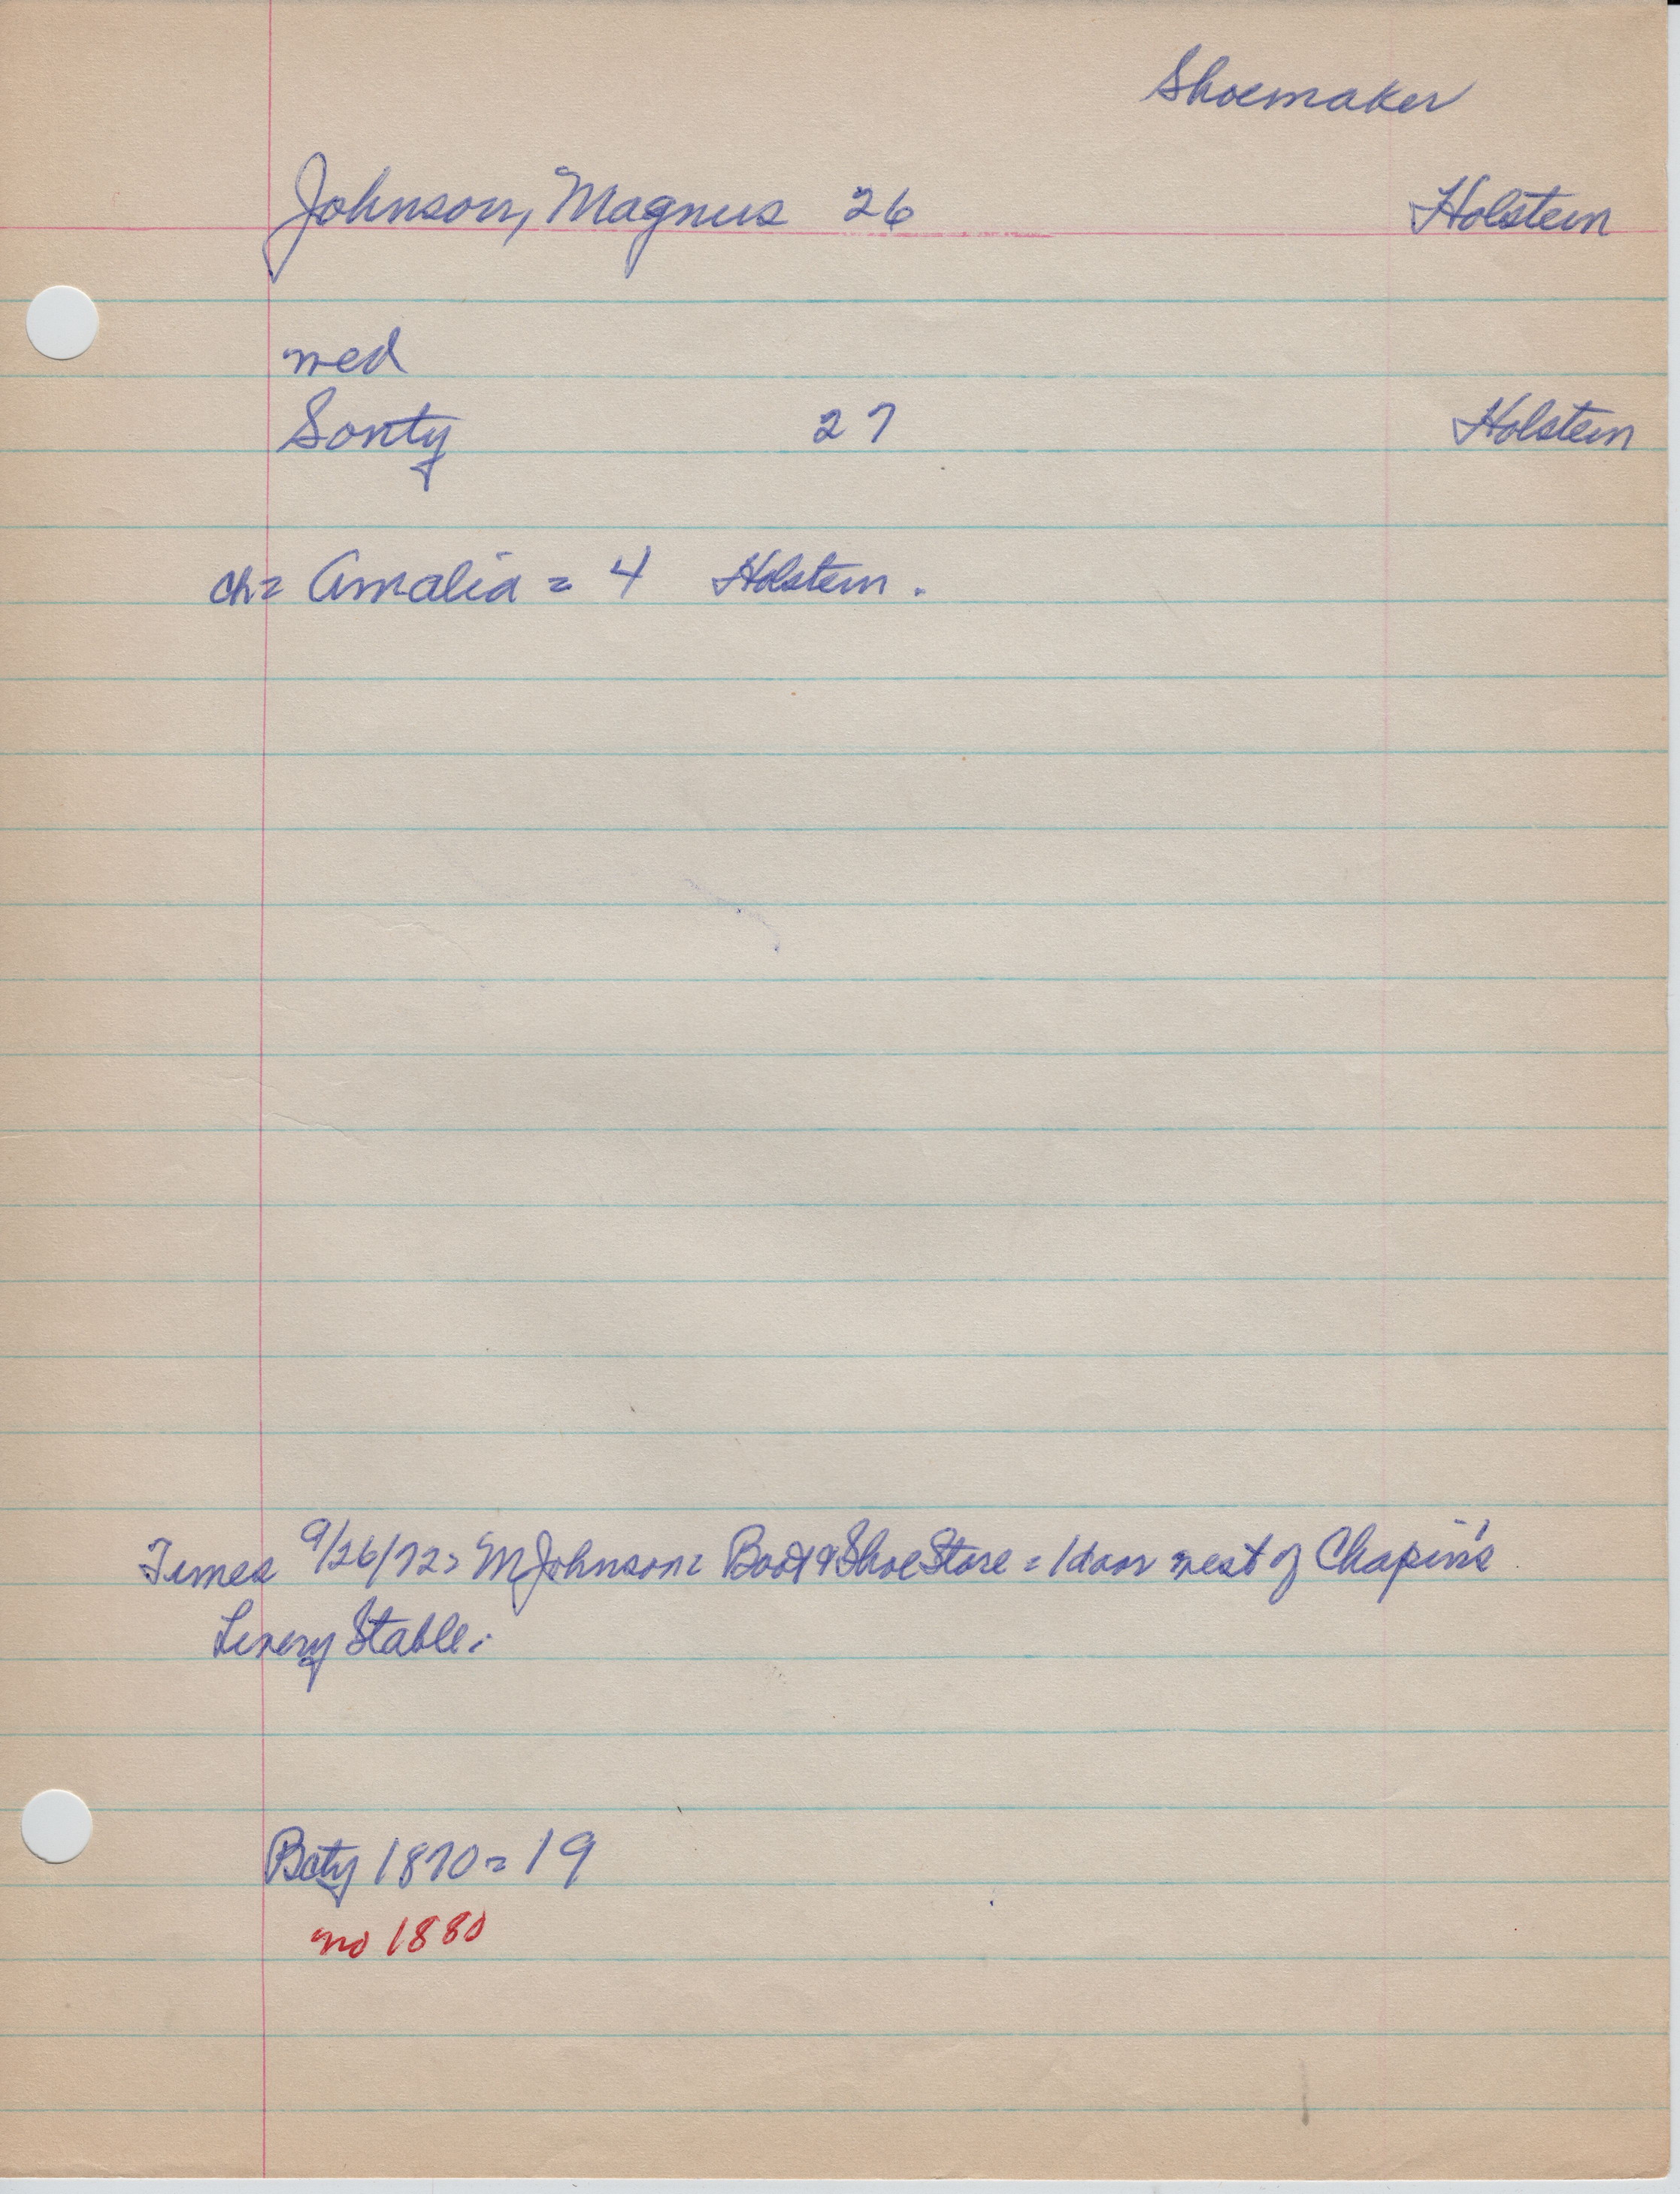 Shoemaker
Johnson, Magnus 26 Holstein
wed
Sonty 27 Holstein
ch = Amalia = 4 Holstein.
Times 9/26/72 = M Johnson = Boot & Shoe Store = 1 door west of Chapin's
Livery Stable.
Bcty 1870 = 19
no 1880